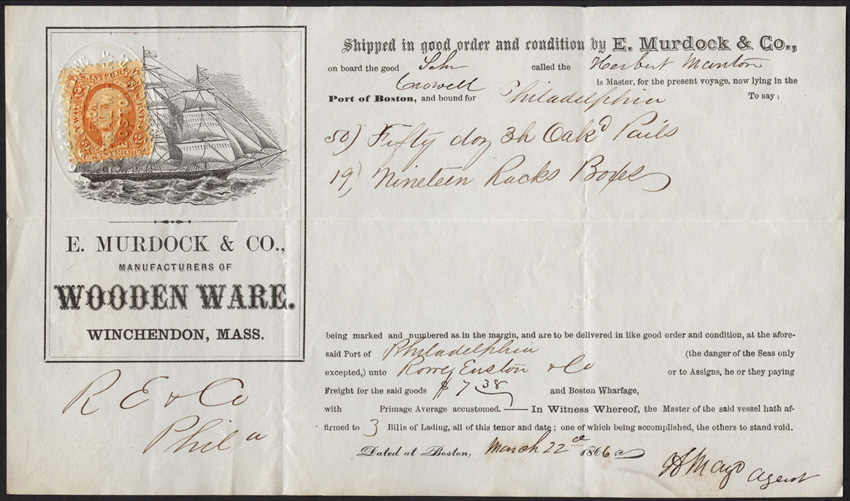 E. MURDOCK & CO.,
MANUFACTURERS OF
WOODEN WARE.
WINCHENDON, MASS.
R E & Co
Phila
Shipped in good order and condition by E. Murdock & Co.,
on board the good Schr called the Herbert Manton
Crowell is Master, for the present voyage, now lying in the
Port of Boston, and bound for Philadelphia To say:
50) Fifty doz 3h Oakd Pails
19) Nineteen Racks Boxes
being marked and numbered as in the margin, and are to be delivered in like good order and condition, at the afore-
said Port of Philadelphia (the danger of the Seas only
excepted,) unto Euston & Co or to Assigns, he or they paying
Freight for the said goods $7.38 and Boston Wharfage,
with Primage Average accustomed. — In Witness Whereof, the Master of the said vessel hath af-
firmed to 3 Bills of Lading, all of this tenor and date; one of which being accomplished, the others to stand void.
Dated at Boston, March 22 1866
Mayo Agent